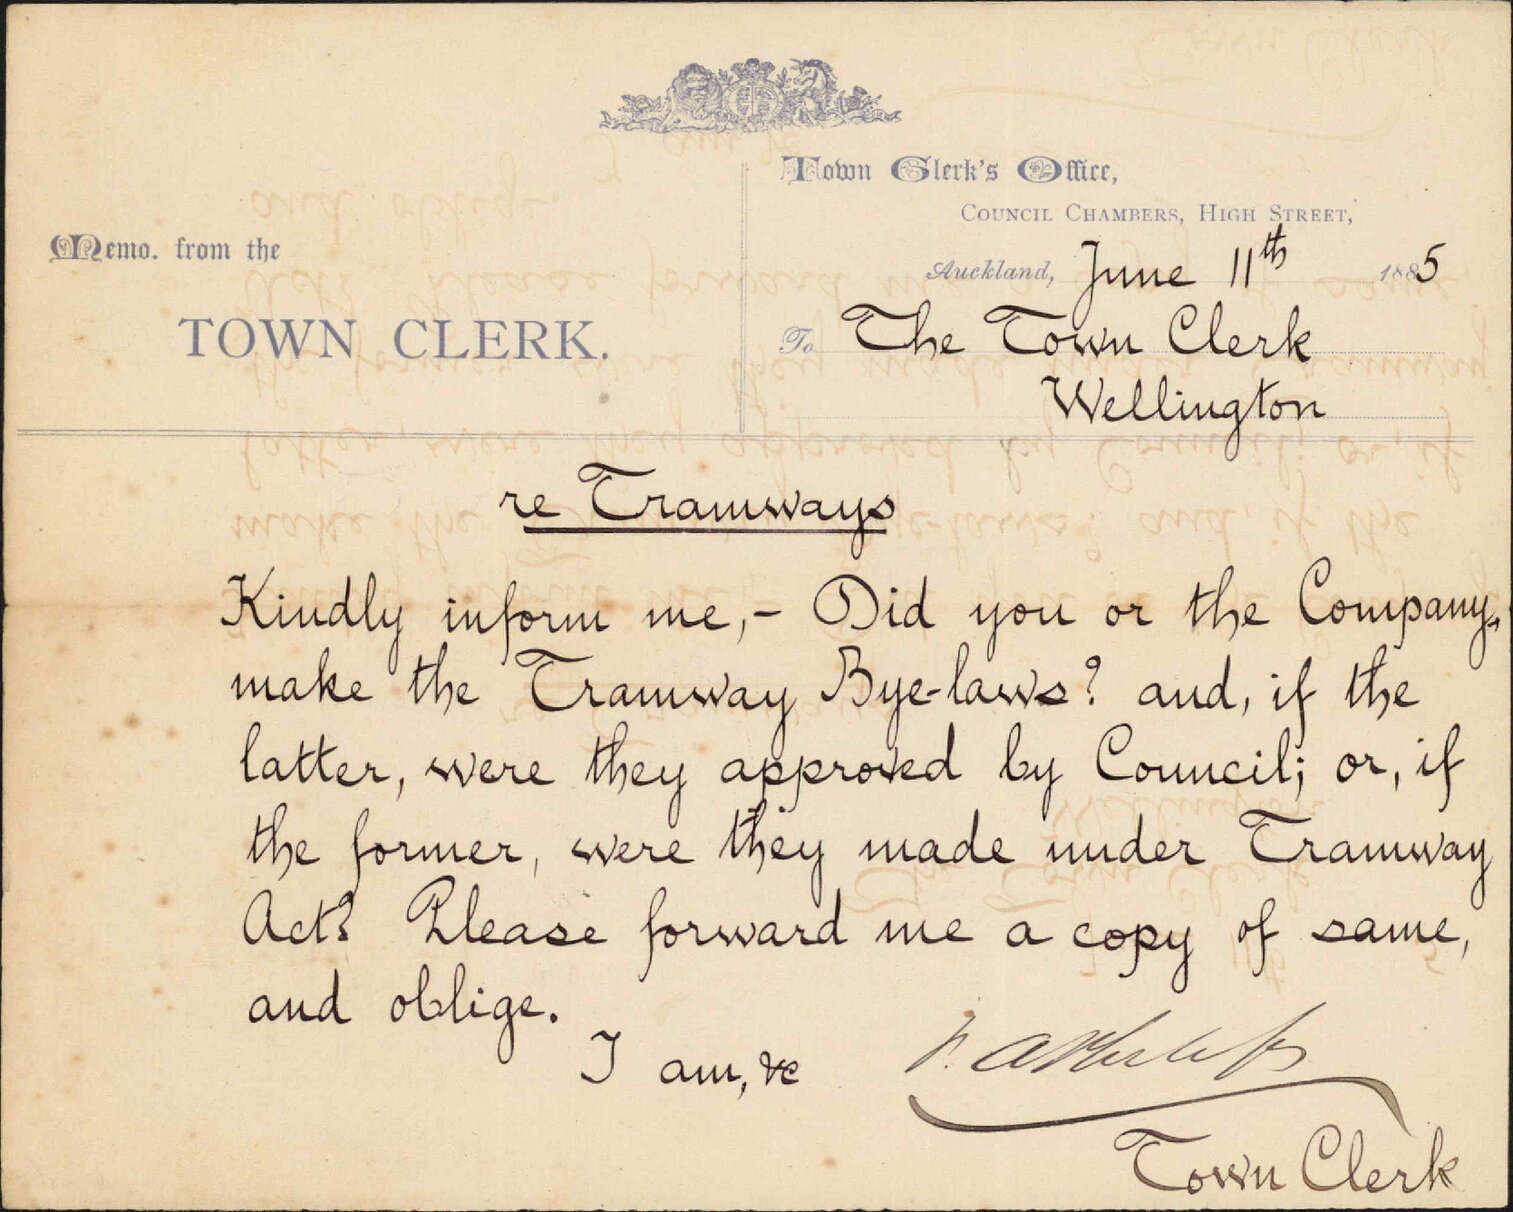 Town Clerk's Office,
COUNCIL CHAMBERS, HIGH STREET,
Memo. from the
TOWN CLERK.
Auckland, June 11th 1885
To The Town Clerk
Wellington
re Tramways
Kindly inform me,- Did you or the Company,
make the Tramway Bye-laws? and, if the
latter, were they approved by Council; or, if
the former, were they made under Tramway
Act? Please forward me a copy of same,
and oblige.
I am, &c
Town Clerk